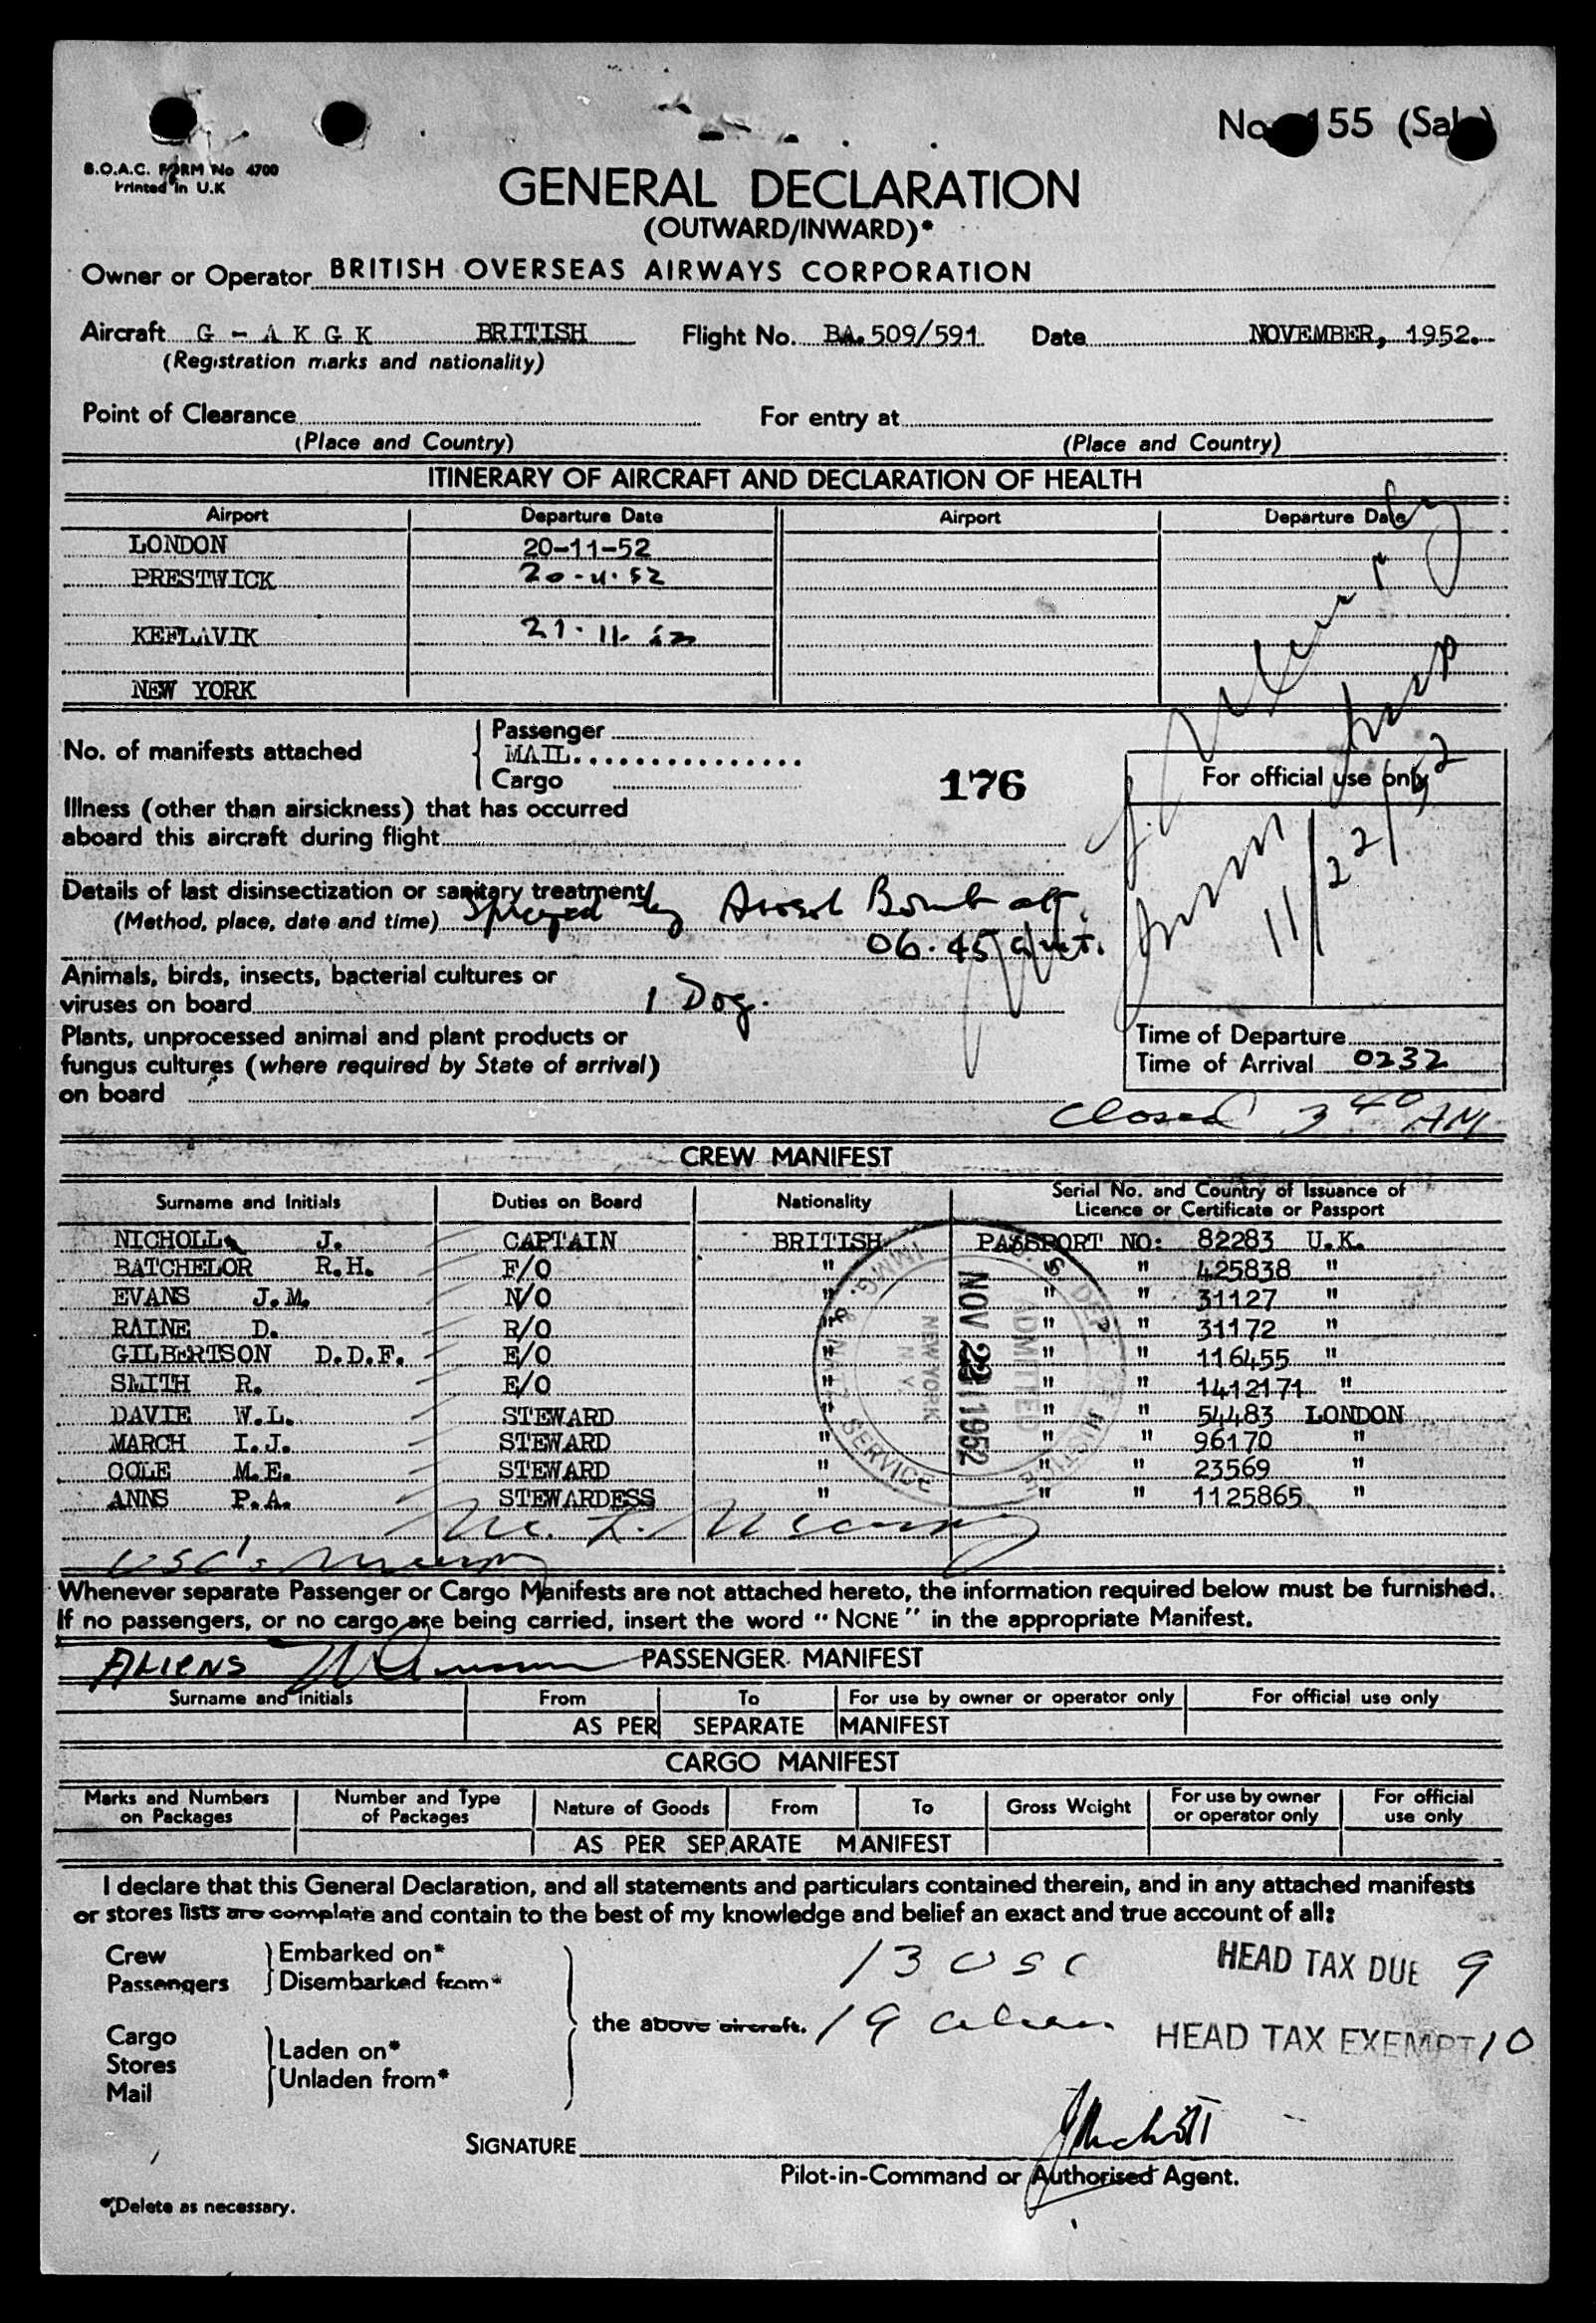 No. 155 (Sale)
B.O.A.C. FORM No 4700
Printed in U.K
GENERAL DECLARATION
(OUTWARD/INWARD)*
Owner or Operator BRITISH OVERSEAS AIRWAYS CORPORATION
Aircraft G - A K G K BRITISH Flight No. BA. 509/591 Date NOVEMBER, 1952.
(Registration marks and nationality)
Point of Clearance For entry at
(Place and Country) (Place and Country)
ITINERARY OF AIRCRAFT AND DECLARATION OF HEALTH
Airport Departure Date Airport Departure Date
LONDON 20-11-52
PRESTWICK 20-11-52
KEFLAVIK 21-11-52
NEW YORK
No. of manifests attached
Passenger
MAIL
Cargo
176
For official use only
Illness (other than airsickness) that has occurred
aboard this aircraft during flight
11/22/52
Details of last disinsectization or sanitary treatment
(Method, place, date and time) Sprayed by Aerosol Bomb at
06.45 G.M.T.
Animals, birds, insects, bacterial cultures or
viruses on board 1 Dog.
Plants, unprocessed animal and plant products or
fungus cultures (where required by State of arrival)
on board
Time of Departure
Time of Arrival 0232
Closed 3 40 AM
CREW MANIFEST
Surname and Initials Duties on Board Nationality Serial No. and Country of Issuance of Licence or Certificate or Passport
NICHOLL J. CAPTAIN BRITISH PASSPORT NO: 82283 U.K.
BATCHELOR R.H. F/O " " " 425838 "
EVANS J.M. N/O " " " 31127 "
RAINE D. R/O " " " 31172 "
GILBERTSON D.D.F. E/O " " " 116455 "
SMITH R. E/O " " " 1412171 "
DAVIE W.L. STEWARD " " " 54483 LONDON
MARCH I.J. STEWARD " " " 96170 "
COLE M.E. STEWARD " " " 23569 "
ANNS P.A. STEWARDESS " " " 1125865 "
U.S. DEPT. OF JUSTICE
IMMIG. & NATZ. SERVICE
ADMITTED
NOV 22 1952
NEW YORK
N.Y.
USC's
Whenever separate Passenger or Cargo Manifests are not attached hereto, the information required below must be furnished.
If no passengers, or no cargo are being carried, insert the word "NONE" in the appropriate Manifest.
ALIENS
PASSENGER MANIFEST
Surname and initials From To For use by owner or operator only For official use only
AS PER SEPARATE MANIFEST
CARGO MANIFEST
Marks and Numbers on Packages Number and Type of Packages Nature of Goods From To Gross Weight For use by owner or operator only For official use only
AS PER SEPARATE MANIFEST
I declare that this General Declaration, and all statements and particulars contained therein, and in any attached manifests
or stores lists are complete and contain to the best of my knowledge and belief an exact and true account of all:
Crew Embarked on*
Passengers Disembarked from*
13 USC
HEAD TAX DUE 9
the above aircraft.
19 aliens
HEAD TAX EXEMPT 10
Cargo
Stores
Mail
Laden on*
Unladen from*
SIGNATURE
Pilot-in-Command or Authorised Agent.
*Delete as necessary.